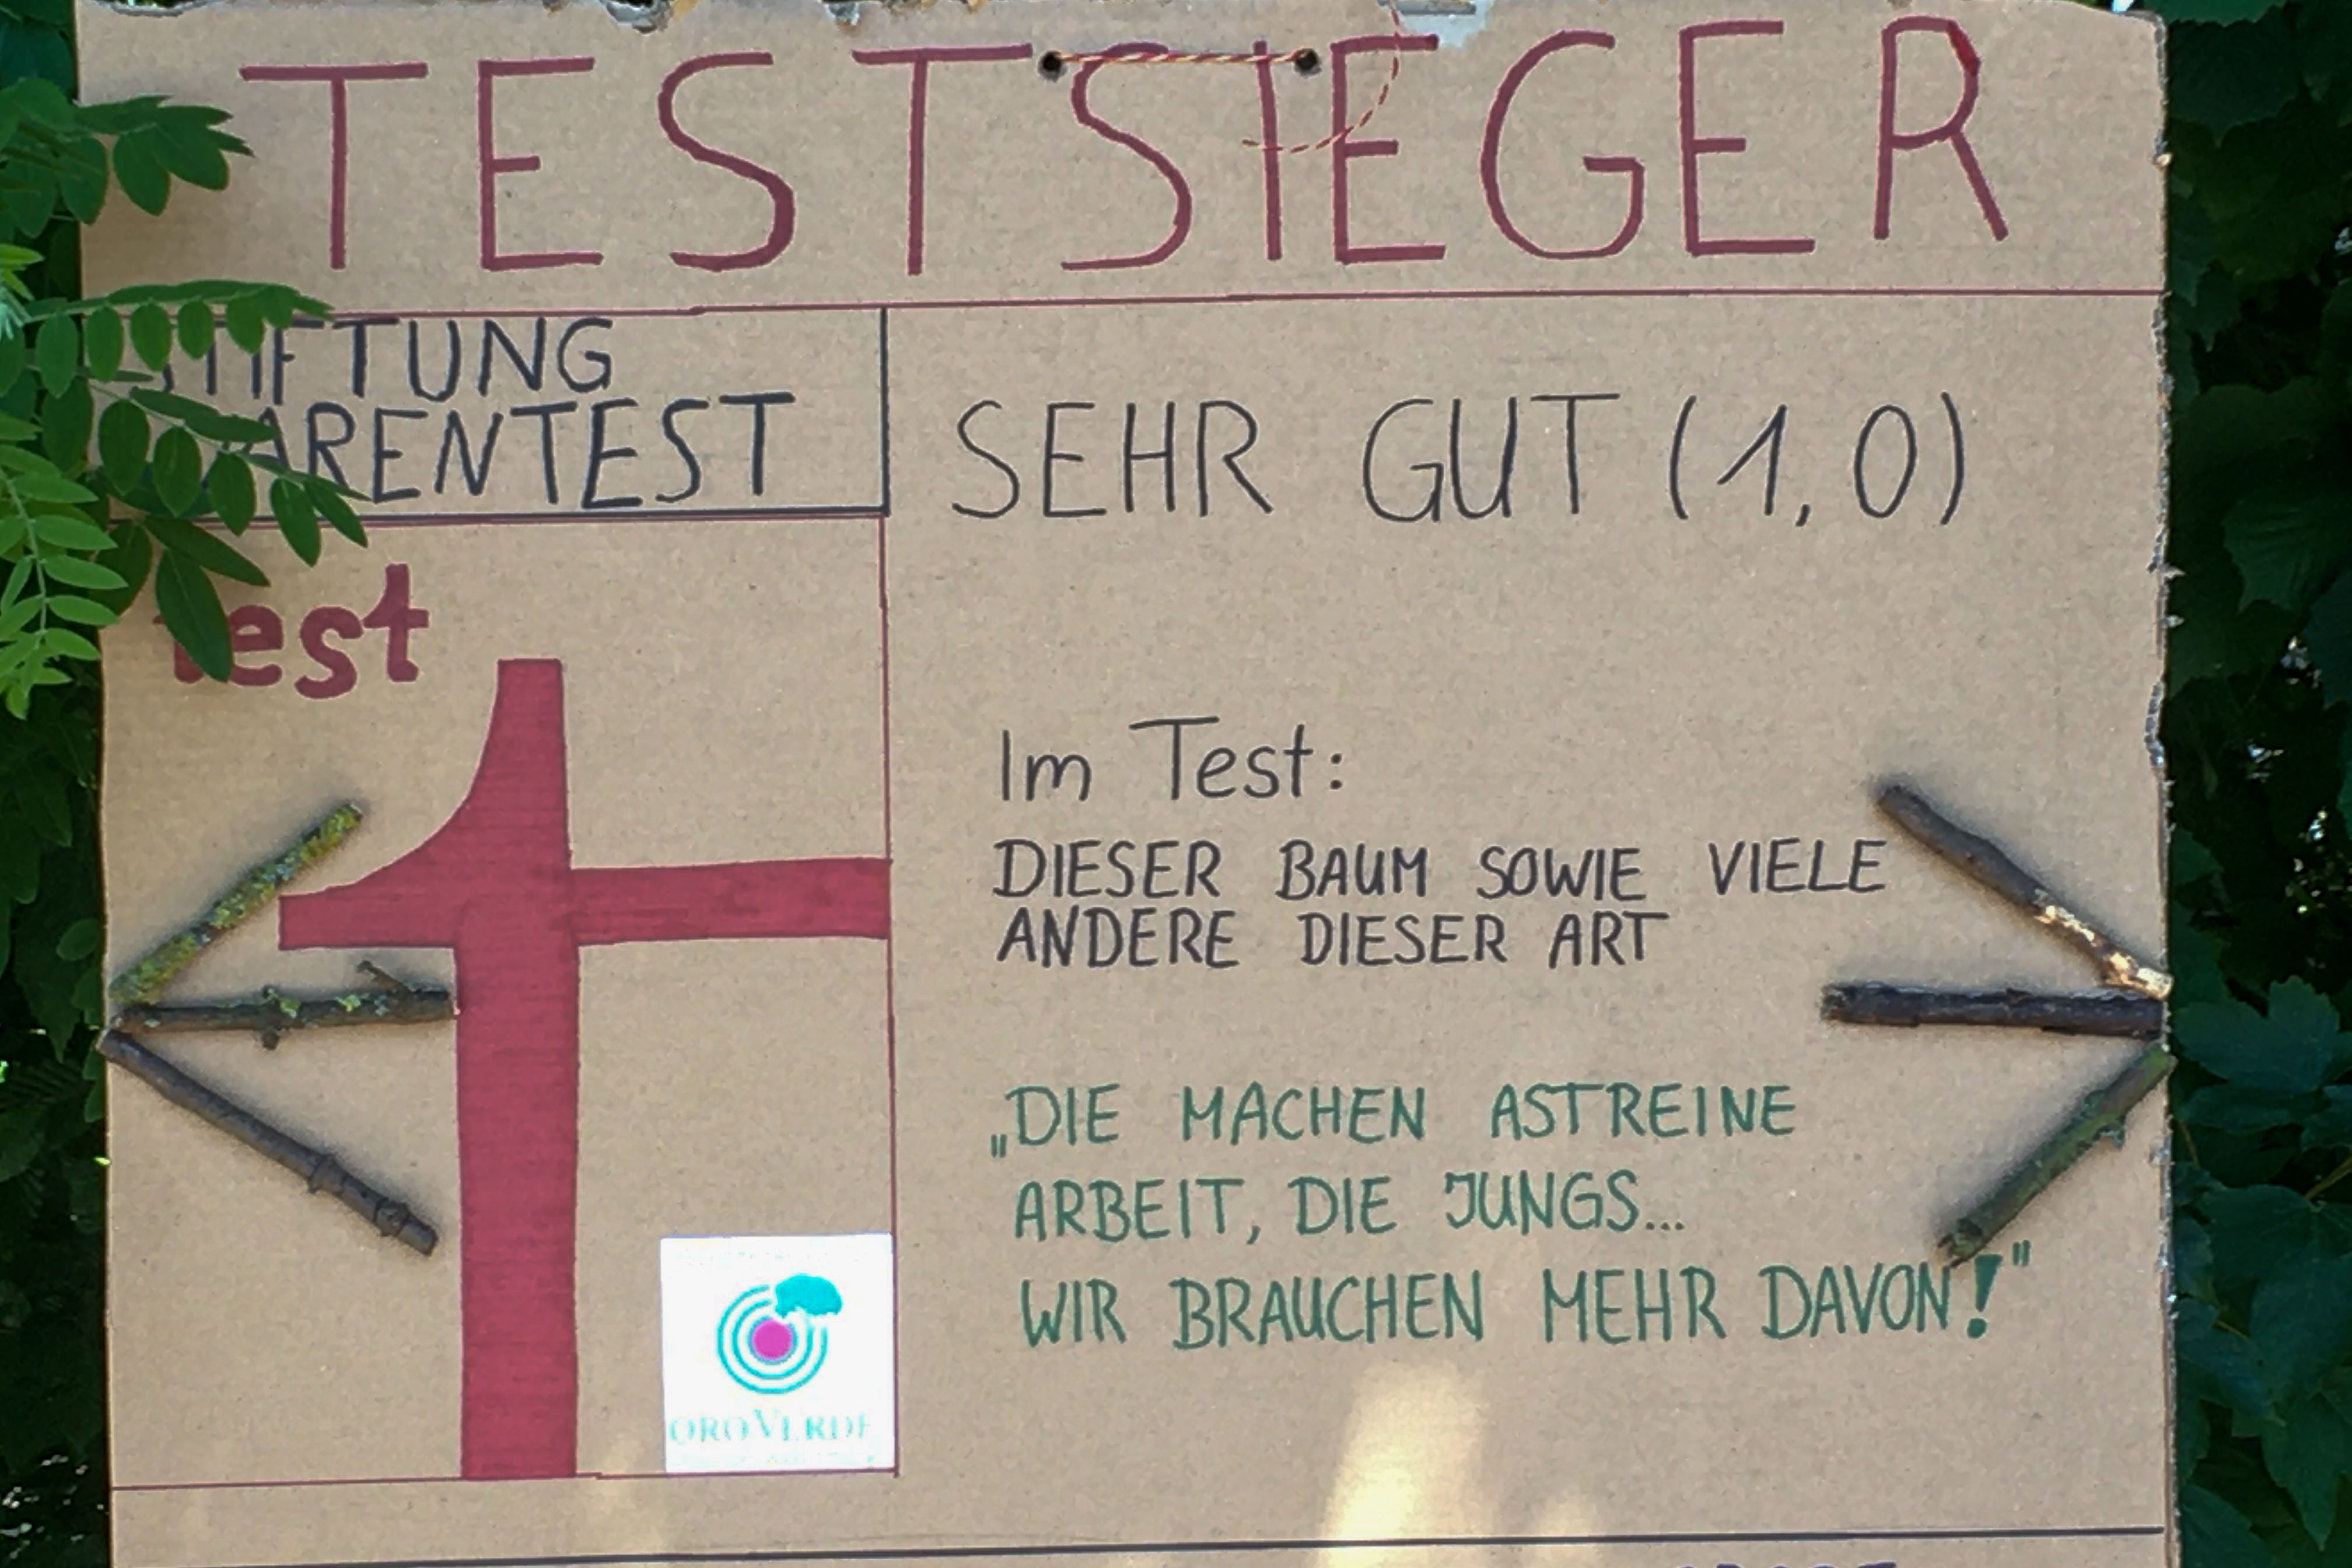 TESTSIEGER
STIFTUNG
WARENTEST
SEHR GUT (1,0)
test
Im Test:
DIESER BAUM SOWIE VIELE
ANDERE DIESER ART
„DIE MACHEN ASTREINE
ARBEIT, DIE JUNGS...
WIR BRAUCHEN MEHR DAVON!"
OROVERDE